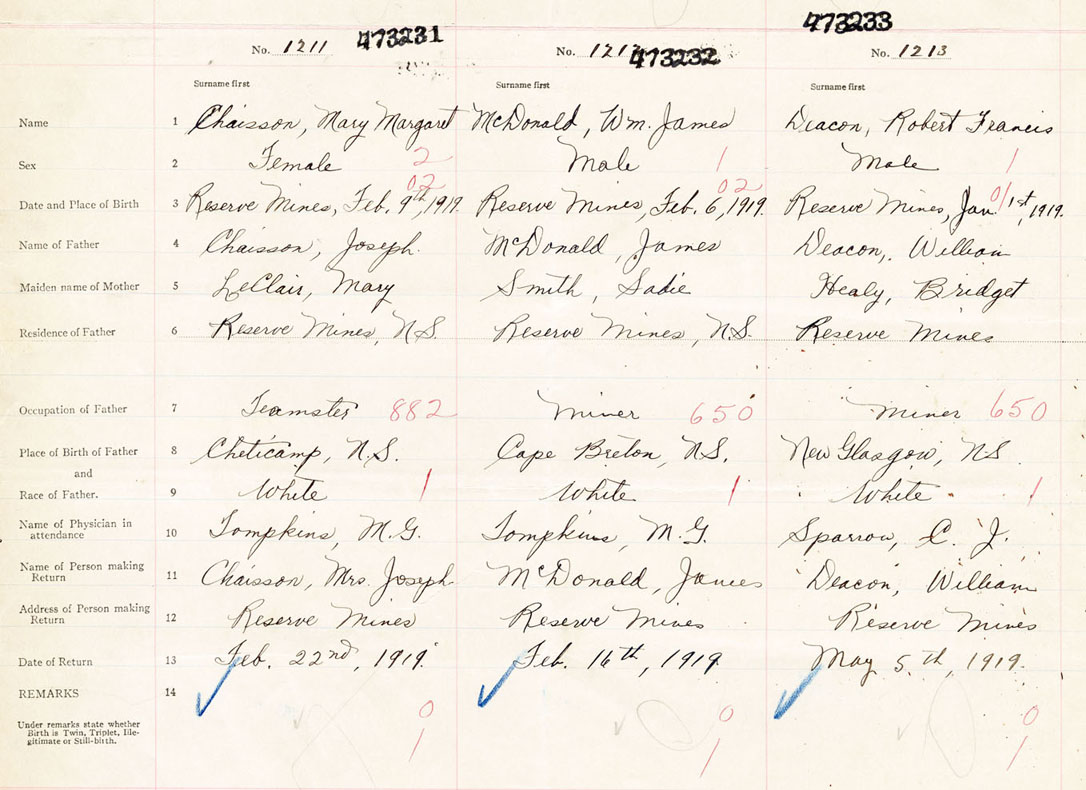 473233
No. 1211 473231 No. 1212 473232 No. 1213
Surname first Surname first Surname first
Name 1 Chaisson, Mary Margaret McDonald, Wm. James Deacon, Robert Francis
Sex 2 Female 2 Male 1 Male 1
02 02 01
Date and Place of Birth 3 Reserve Mines, Feb. 9th, 1919. Reserve Mines, Feb. 6, 1919. Reserve Mines, Jan. 1st, 1919.
Name of Father 4 Chaisson, Joseph. McDonald, James Deacon, William
Maiden name of Mother 5 LeClair, Mary Smith, Sadie Healy, Bridget
Residence of Father 6 Reserve Mines, N.S. Reserve Mines, N.S. Reserve Mines
Occupation of Father 7 Teamster 882 Miner 650 Miner 650
Place of Birth of Father 8 Cheticamp, N.S. Cape Breton, N.S. New Glasgow, N.S
and
Race of Father. 9 White 1 White 1 White 1
Name of Physician in
attendance 10 Tompkins, M.G. Tompkins, M.G. Sparrow, C. J.
Name of Person making
Return 11 Chaisson, Mrs. Joseph McDonald, James Deacon, William
Address of Person making
Return 12 Reserve Mines Reserve Mines Reserve Mines
Date of Return 13 Feb. 22nd, 1919. Feb. 16th, 1919. May 5th, 1919.
REMARKS 14
0 0 0
Under remarks state whether
Birth is Twin, Triplet, Ille-
gitimate or Still-birth.
1 1 1